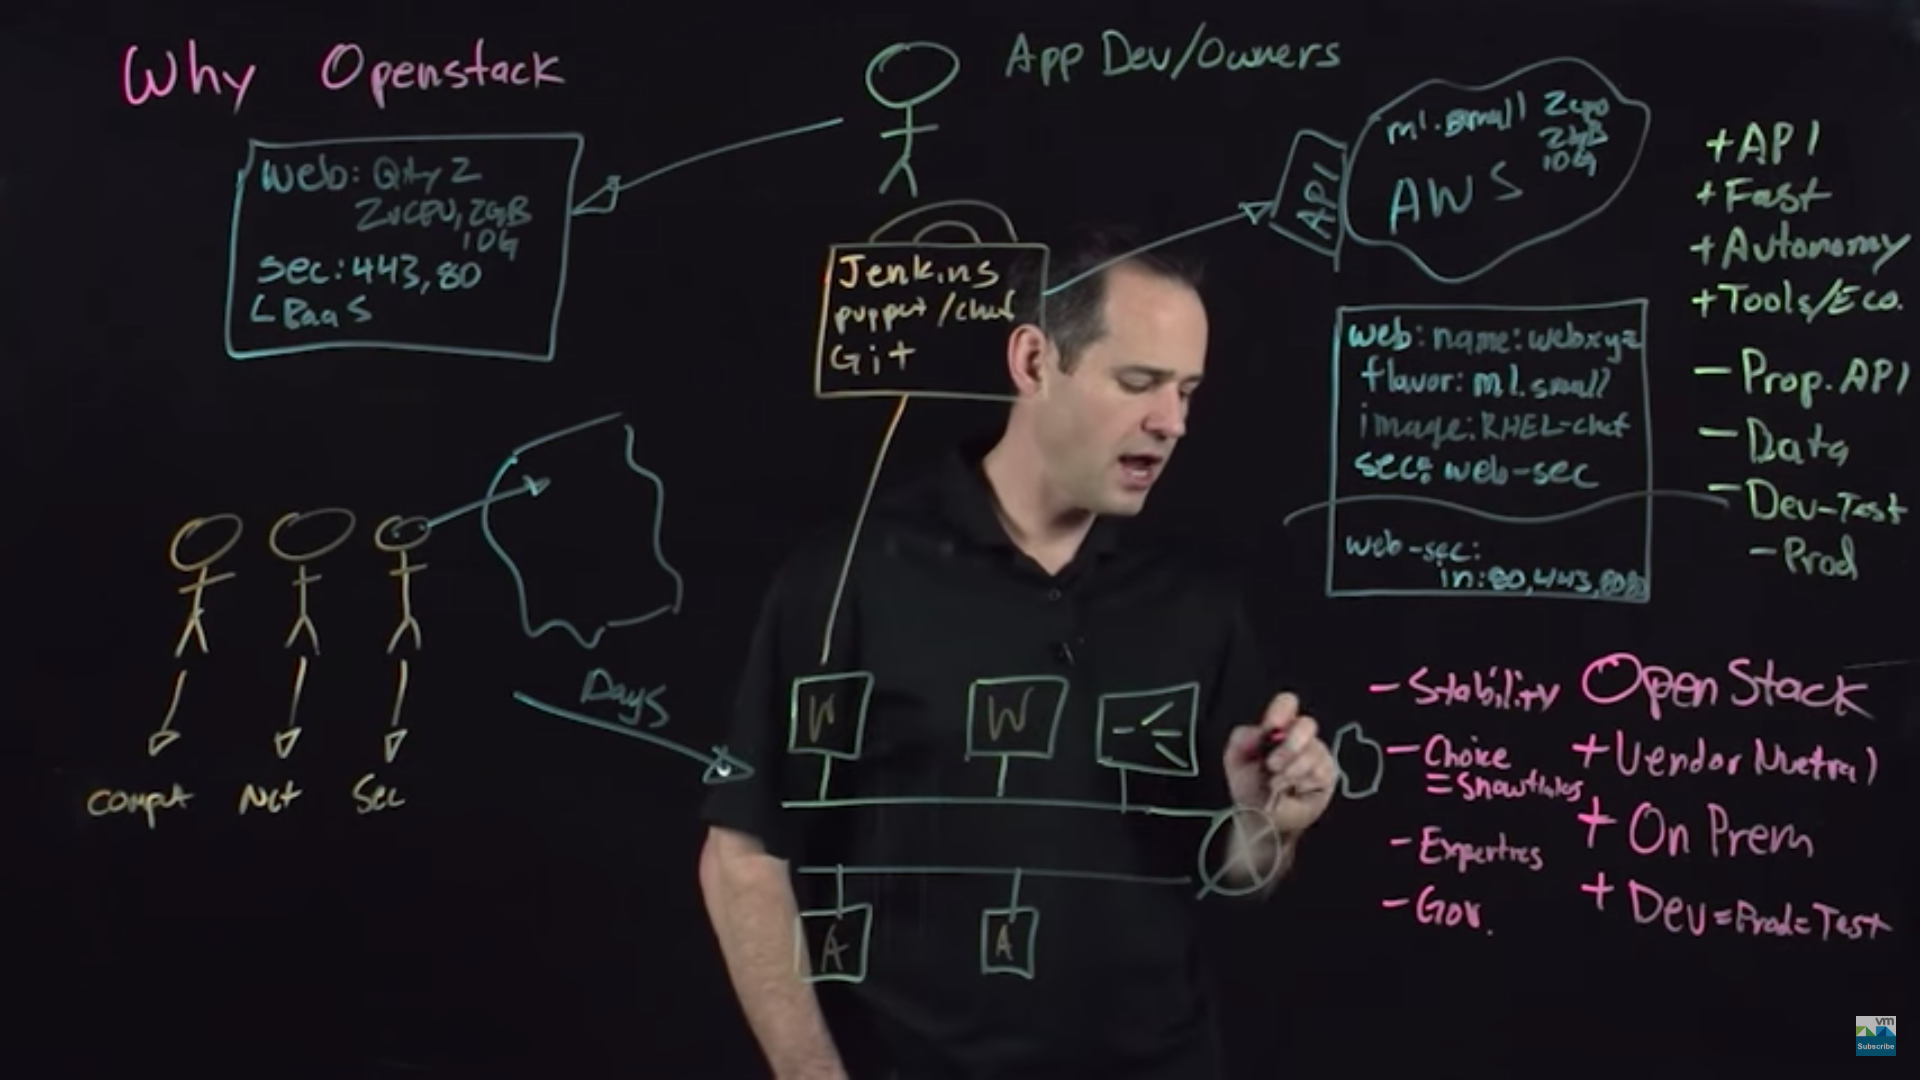 Why Openstack
App Dev/Owners
web: Qty 2
2vCPU, 2GB
10G
sec: 443, 80
LBaaS
Jenkins
puppet/chef
Git
API
m1.small 2cpu
2gB
10G
AWS
+ API
+ Fast
+ Autonomy
+ Tools/Eco.
- Prop. API
- Data
- Dev-Test
- Prod
web: name: webxyz
flavor: m1.small
image: RHEL-chef
sec: web-sec
web-sec:
in: 80, 443, 8080
Comput Net Sec
Days
W W
A A
- Stability
- Choice
= Snowflakes
- Expertres
- Gov.
OpenStack
+ Vendor Nuetral
+ On Prem
+ Dev = Prod = Test
vm
Subscribe